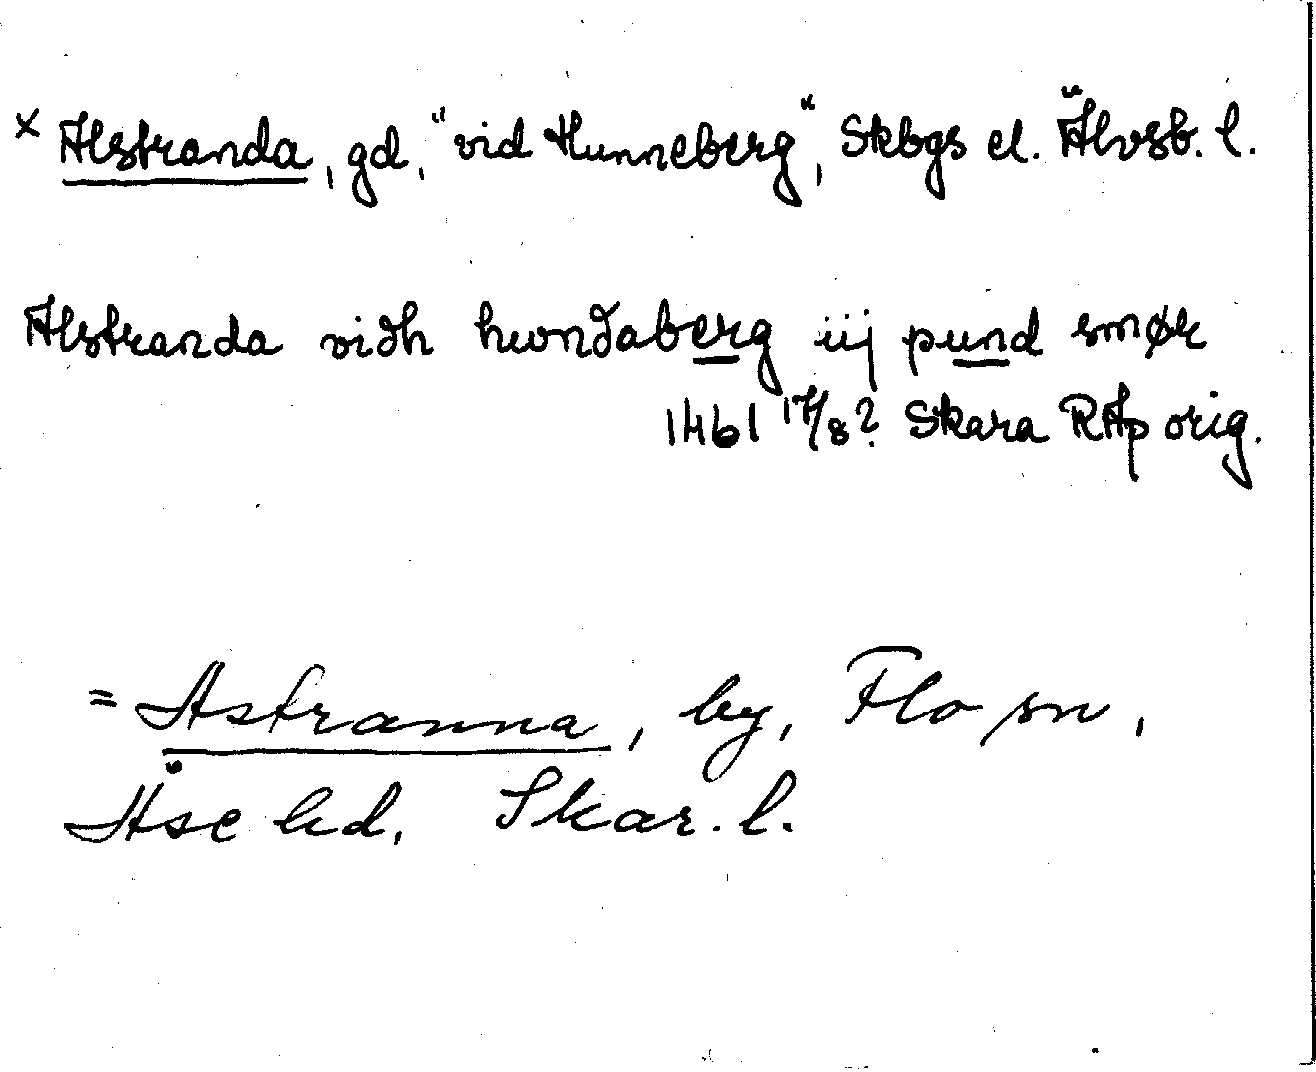 × Alstranda, gd, "vid Hunneberg", Skbgs el. Älvsb. l.
Alstranda vidh hwndaberg iij pund smør
1461 17/8? Skara RAp orig.
= Astranna, by, Flo sn,
Åse hd, Skar. l.